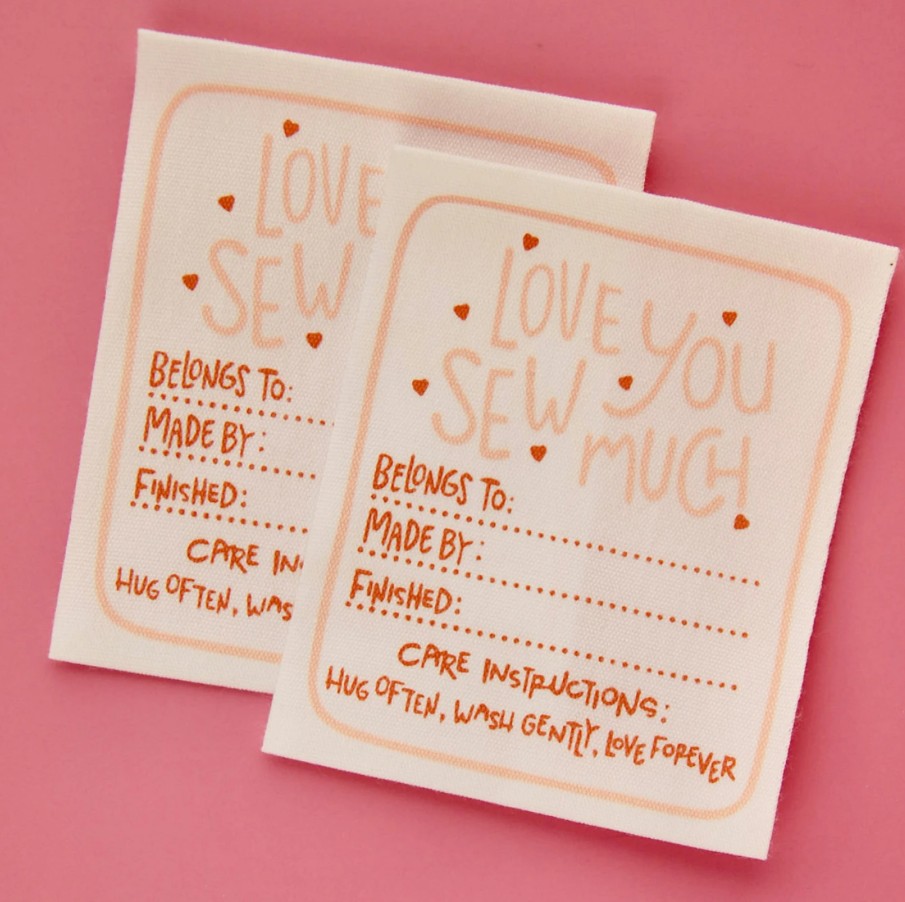 LOVE
SEW
BELONGS TO:
MADE BY:
FINISHED:
CARE IN
HUG OFTEN, WAS
LOVE YOU
SEW MUCH
BELONGS TO:
MADE BY:
FINISHED:
CARE INSTRUCTIONS:
HUG OFTEN, WASH GENTLY, LOVE FOREVER